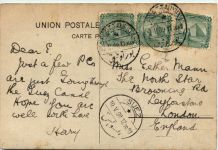 UNION POSTALE
CARTE PO
Dear E
Just a few PCs
are just Going through
the Suez Canal
Hope you are
well with love
Harry
Mrs. Peter Mann
The North Star
Browning Rd
Leytonstone
London
England